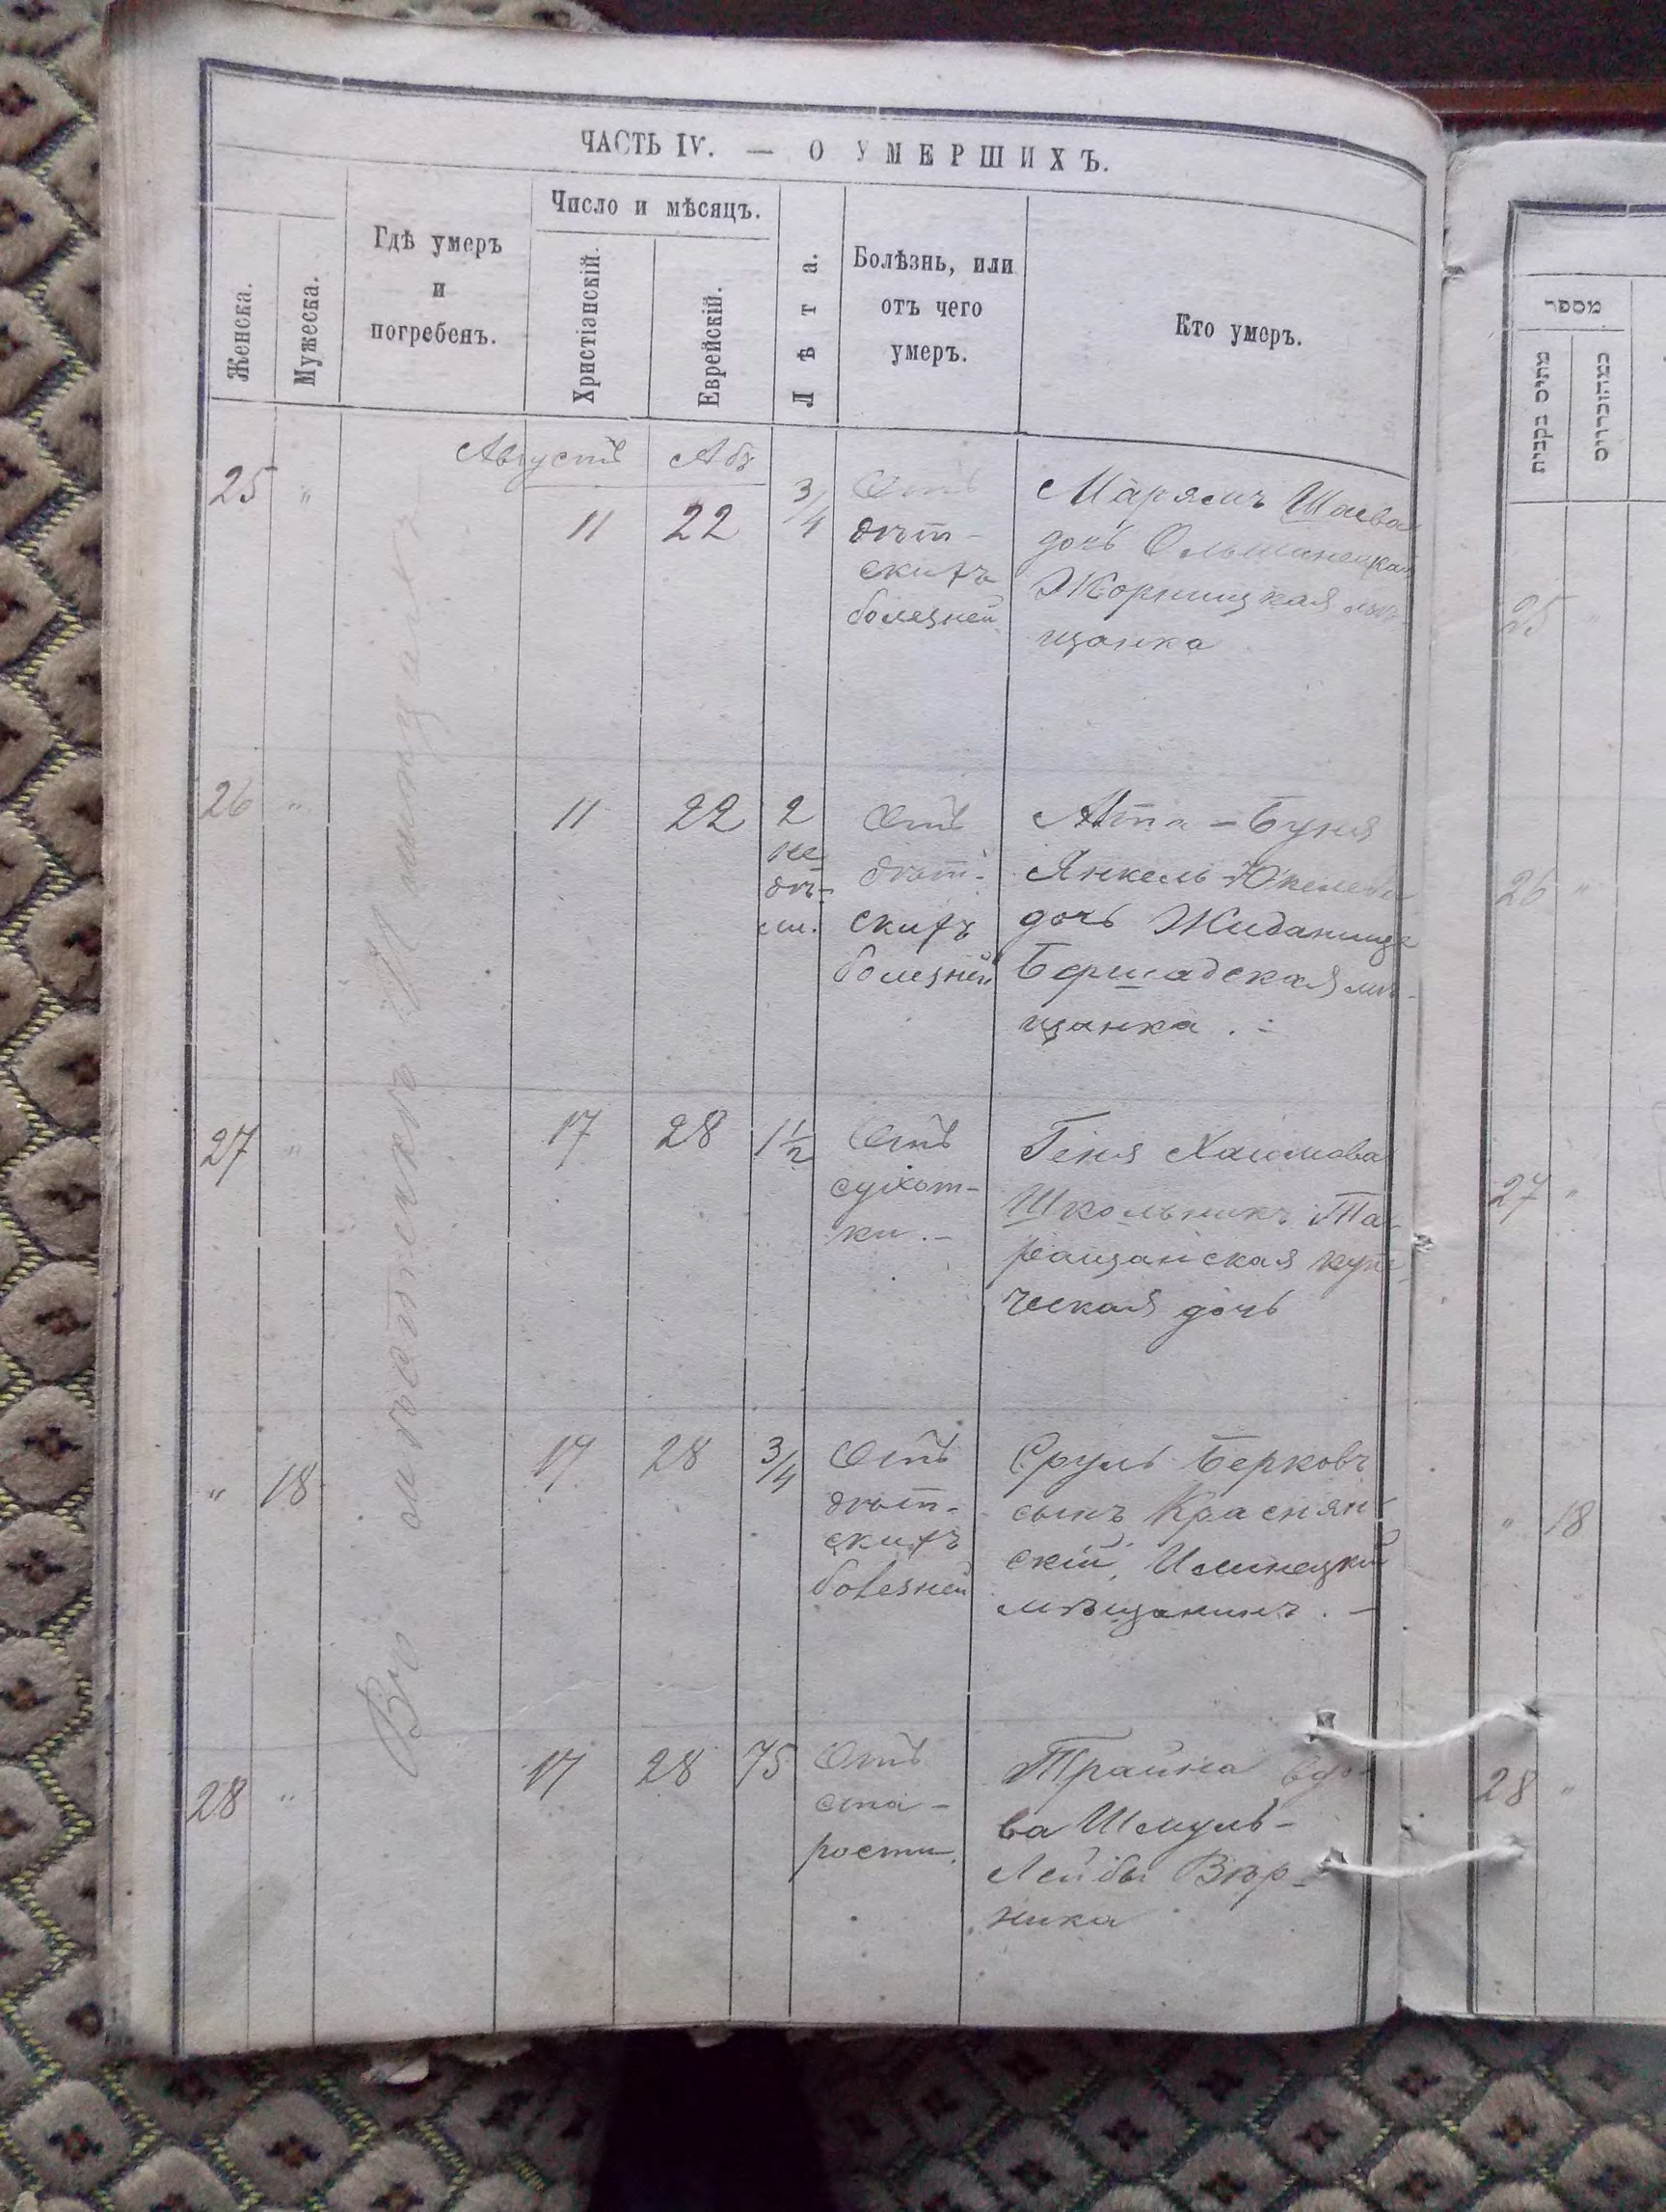 ЧАСТЬ IV. — О УМЕРШИХЪ.
Женска.
Мужеска.
Гдѣ умеръ
и
погребенъ.
Число и мѣсяцъ.
Христіанскій.
Еврейскій.
Лѣта.
Болѣзнь, или
отъ чего
умеръ.
Кто умеръ.
Въ мѣстечкѣ
Августъ Абъ
25 " 11 22 3/4
Отъ
дѣт-
скихъ
болезней
Марьямъ Шаева
дочь Ольшанецкая
Жорнищкая мѣ-
щанка
26 " 11 22 2
не
дѣ-
ли.
Отъ
дѣт-
скихъ
болезней
Буня
Янкель-
дочь
Бершадская мѣ-
щанка .-
27 " 17 28 1½
Отъ
сухот-
ки.-
Геня Хаимова
Школьникъ Та-
ращанская купе-
ческая дочь
" 18 17 28 3/4
Отъ
дѣт-
скихъ
болезней
Сруль Берковъ
сынъ Краснян-
скій, Илинецкій
мѣщанинъ. -
28 " 17 28 75
Отъ
ста-
рости.
Трайна вдо-
ва Шмуль-
Лейбы Вѣр-
ника
מספר
25 "
26 "
27 "
" 18
28 "